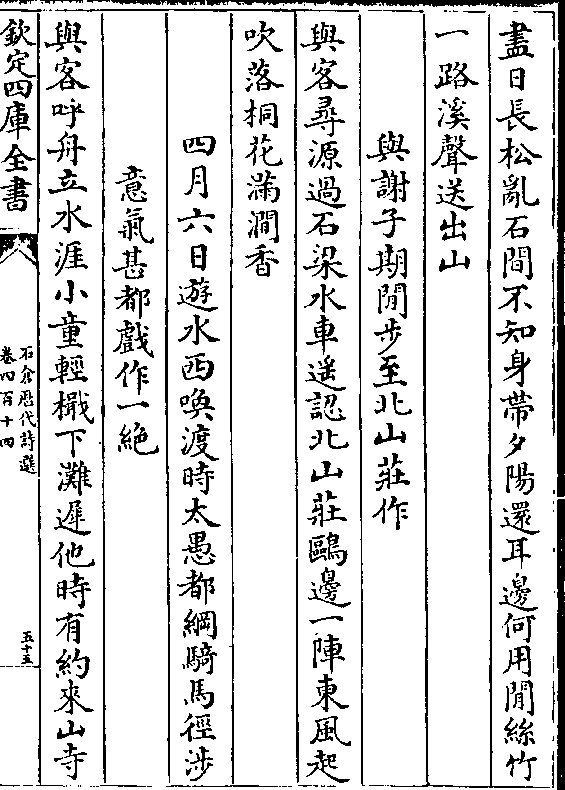 盡日長松亂石間不知身帶夕陽還耳邊何用閒絲竹
一路溪聲送出山
與謝子期閒步至北山莊作
與客尋源過石梁水車遥認北山莊鷗邊一陣東風起
吹落桐花滿澗香
四月六日遊水西喚渡時太愚都綱騎馬徑涉
意氣甚都戲作一絶
與客呼舟立水涯小童輕檝下灘遲他時有約來山寺
欽定四庫全書
石倉歷代詩選
卷四百十四
五十五